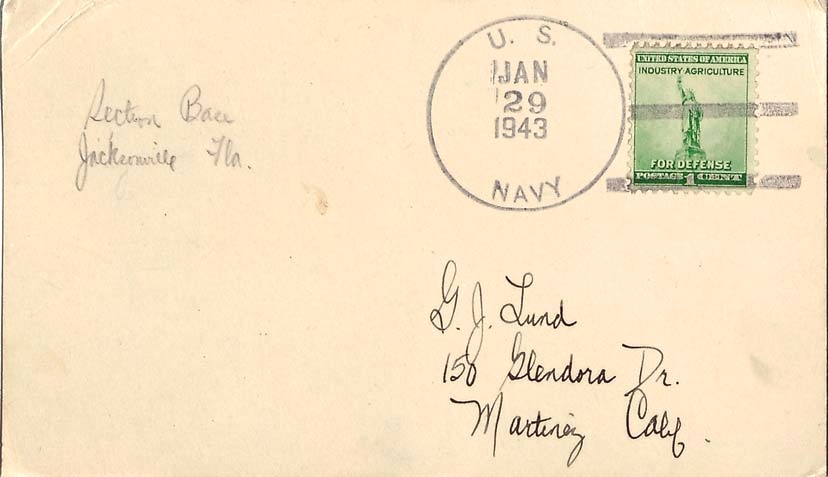 Section Base
Jacksonville Fla.
U. S.
JAN
29
1943
NAVY
UNITED STATES OF AMERICA
INDUSTRY·AGRICULTURE
FOR DEFENSE
POSTAGE 1 CENT
G. J. Lund
150 Glendora Dr.
Martinez Calif.